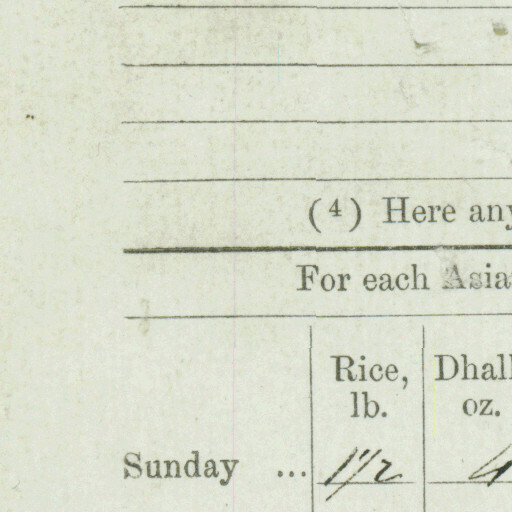 (4) Here any
For each Asia
Rice, Dhall
lb. oz.
Sunday ... 1 1/2 4